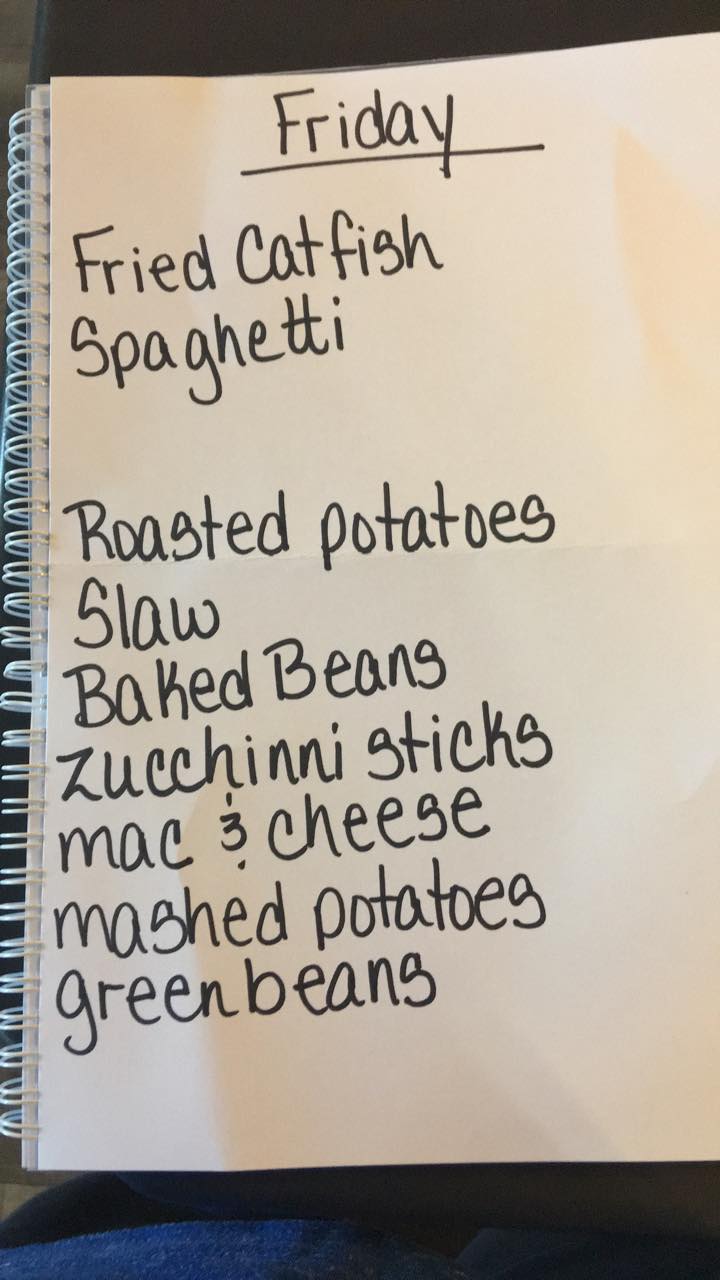 Friday
Fried Catfish
Spaghetti
Roasted potatoes
Slaw
Baked Beans
Zucchinni sticks
mac & cheese
mashed potatoes
green beans